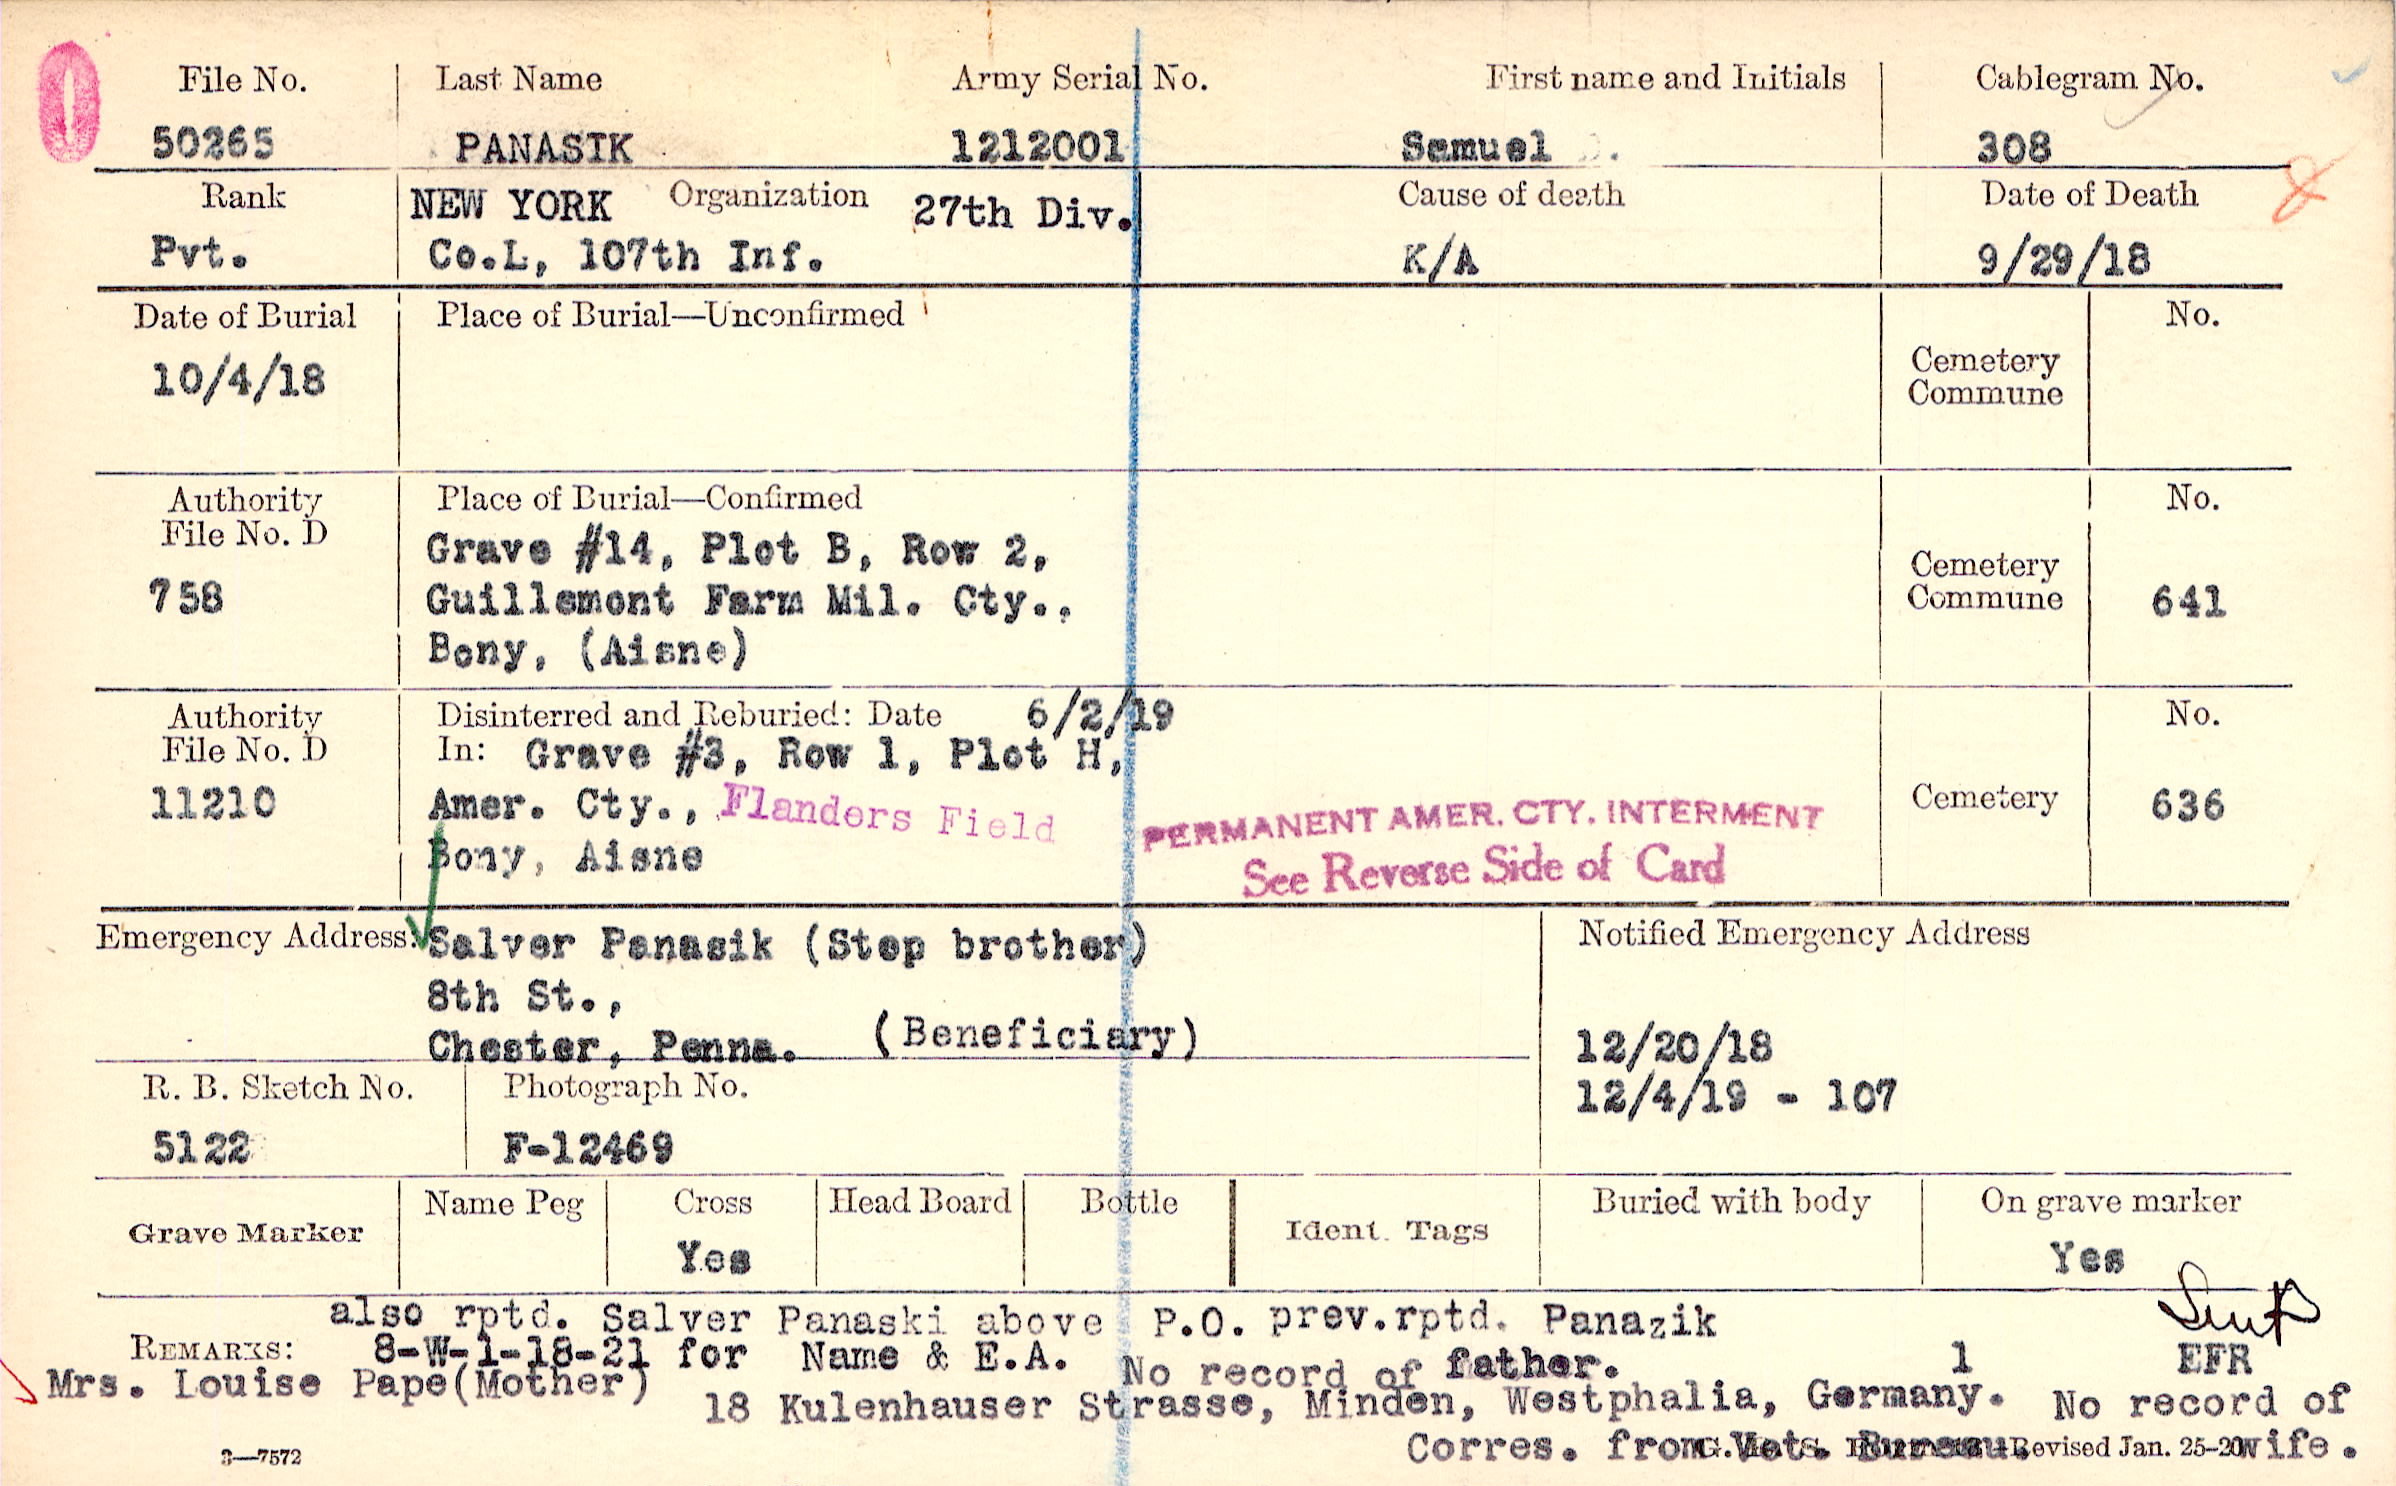 File No. Last Name Army Serial No. First name and Initials Cablegram No.
50265 PANASIK 1212001 Samuel 308
Rank NEW YORK Organization 27th Div. Cause of death Date of Death
Pvt. Co.L, 107th Inf. K/A 9/29/18
Date of Burial Place of Burial—Unconfirmed No.
10/4/18 Cemetery
Commune
Authority Place of Burial—Confirmed No.
File No. D Grave #14, Plot B, Row 2,
758 Guillemont Farm Mil. Cty., Cemetery
Commune 641
Bony, (Aisne)
Authority Disinterred and Reburied: Date 6/2/19 No.
File No. D In: Grave #3, Row 1, Plot H,
11210 Amer. Cty., Flanders Field PERMANENT AMER. CTY. INTERMENT Cemetery 636
Bony, Aisne See Reverse Side of Card
Emergency Address: Salver Panasik (Step brother) Notified Emergency Address
8th St.,
Chester, Penna. (Beneficiary) 12/20/18
R. B. Sketch No. Photograph No. 12/4/19 - 107
5122 F-12469
Grave Marker Name Peg Cross Head Board Bottle Ident. Tags Buried with body On grave marker
Yes Yes
also rptd. Salver Panaski above P.O. prev.rptd. Panazik
REMARKS: 8-W-1-18-21 for Name & E.A. No record of father. 1 EFR
Mrs. Louise Pape(Mother) 18 Kulenhauser Strasse, Minden, Westphalia, Germany. No record of
Corres. from Vets. Bureau. Revised Jan. 25-20 wife.
3—7572